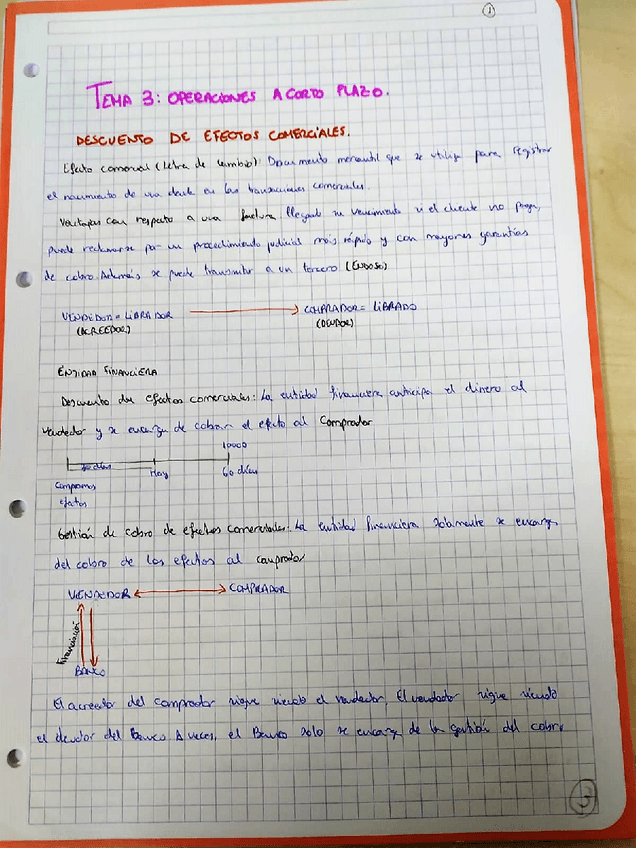 1
TEMA 3: OPERACIONES A CORTO PLAZO.
DESCUENTO DE EFECTOS COMERCIALES.
Efecto comercial (Letra de Cambio): Documento mercantil que se utiliza para registrar
el nacimiento de una deuda en las transacciones comerciales.
Ventajas con respecto a una factura llegado su vencimiento si el cliente no paga,
puede reclamarse por un procedimiento judicial más rápido y con mayores garantías
de cobro. Además se puede transmitir a un tercero (ENDOSO)
VENDEDOR = LIBRADOR COMPRADOR = LIBRADO
(ACREEDOR) (DEUDOR)
ENTIDAD FINANCIERA
Descuento de efectos comerciales: La entidad financiera anticipa el dinero al
vendedor y se encarga de cobrar el efecto al Comprador
10000
30 días Hoy 60 días
Compramos
efectos
Gestión de cobro de efectos comerciales: La entidad financiera solamente se encarga
del cobro de los efectos al comprador
VENDEDOR COMPRADOR
Financiación
BANCO
El acreedor del comprador sigue siendo el vendedor, El vendedor sigue siendo
el deudor del Banco A veces, el Banco solo se encarga de la gestión del cobro